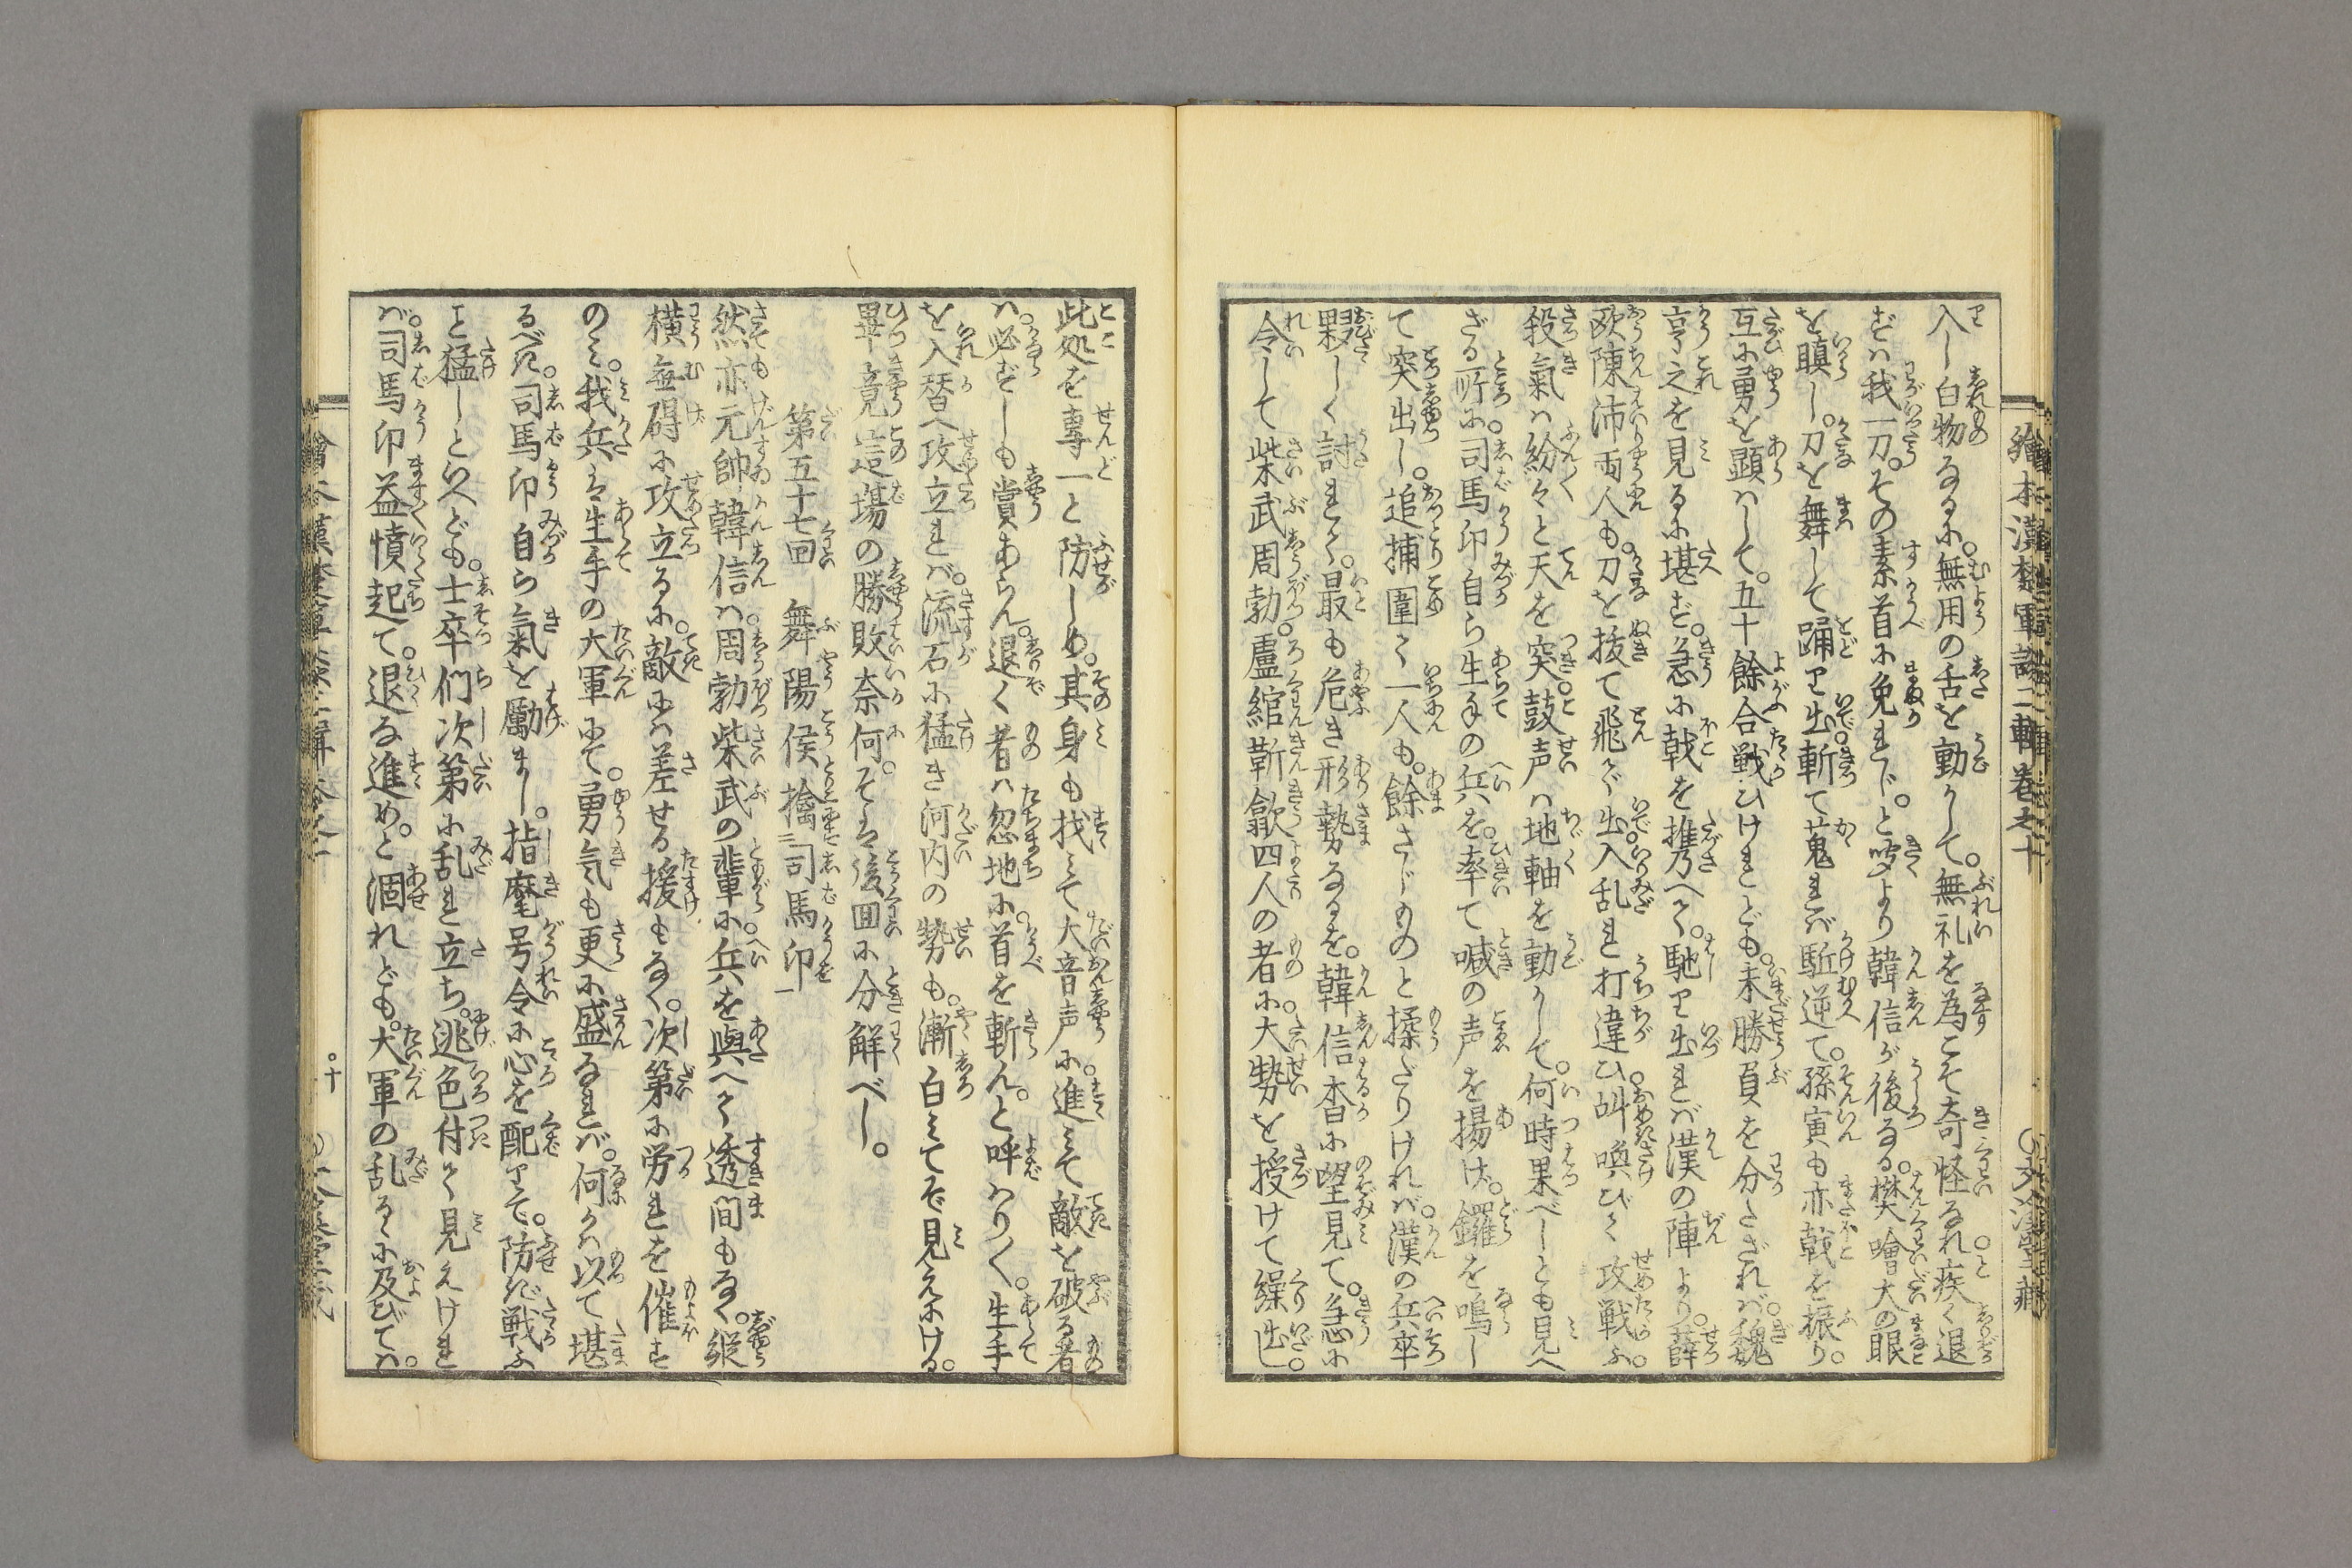 繪本漢楚軍談二輯巻之十
入し白物なるに。無用の舌を動かして。無礼を為こそ奇怪なれ疾く退
ずハ我一刀。その素首に免れじ。と
より韓信が後なる。樊噲大の眼
を瞋し。刀を舞して踊り出斬て蒐れバ駈逆て。孫寅も亦戟を振り。
互に勇を顕ハして。五十餘合戦ひけれども。未勝負を分たざれバ。魏
亨之を見るに堪ず。急に戟を携へて。馳り出れバ漢の陣より。薛
欧陳沛両人も。刀を抜て飛で出。入乱れ打違ひ。叫喚びて攻戦ふ。
殺氣ハ紛々と天を突。鼓声ハ地軸を動かして。何時果べしとも見へ
ざる所に。司馬卬自ら生手の兵を。率て喊の声を揚げ。鑼を鳴し
て突出し。追捕圍て一人も。餘さじものと揉だりけれバ。漢の兵卒
夥しく討れて。最も危き形勢なるを。韓信杳に望見て。急に
令して柴武周勃。盧綰靳歙四人の者に。大勢を授けて繰出し。
此処を専一と防しめ。其身も找ミて大音声に。進ミて敵を破る者
ハ。必ずしも賞あらん。退く者ハ忽地に。首を斬ん。と呼ハりて。生手
を入替へ攻立れバ。流石に猛き河内の勢も。漸白ミてぞ見えにける。
畢竟這場の勝敗奈何。そは後回に分解べし。
第五十七回　舞陽侯擒二司馬卬一
然亦元帥韓信ハ。周勃柴武の輩に。兵を與へて透間もなく。縦
横無碍に攻立るに。敵にハ差せる援もなく。次第に労れを催す
のミ。我兵は生手の大軍にて。勇気も更に盛なれバ。何かハ以て堪
るべき。司馬卬自ら氣を勵まし。指麾号令に心を配りて。防ぎ戦ふ
こと猛しといへども。士卒們次第に乱れ立ち。逃色付て見えけれ
バ。司馬卬益憤起て。退な進め。と涸れども。大軍の乱るゝに及びてハ。
十